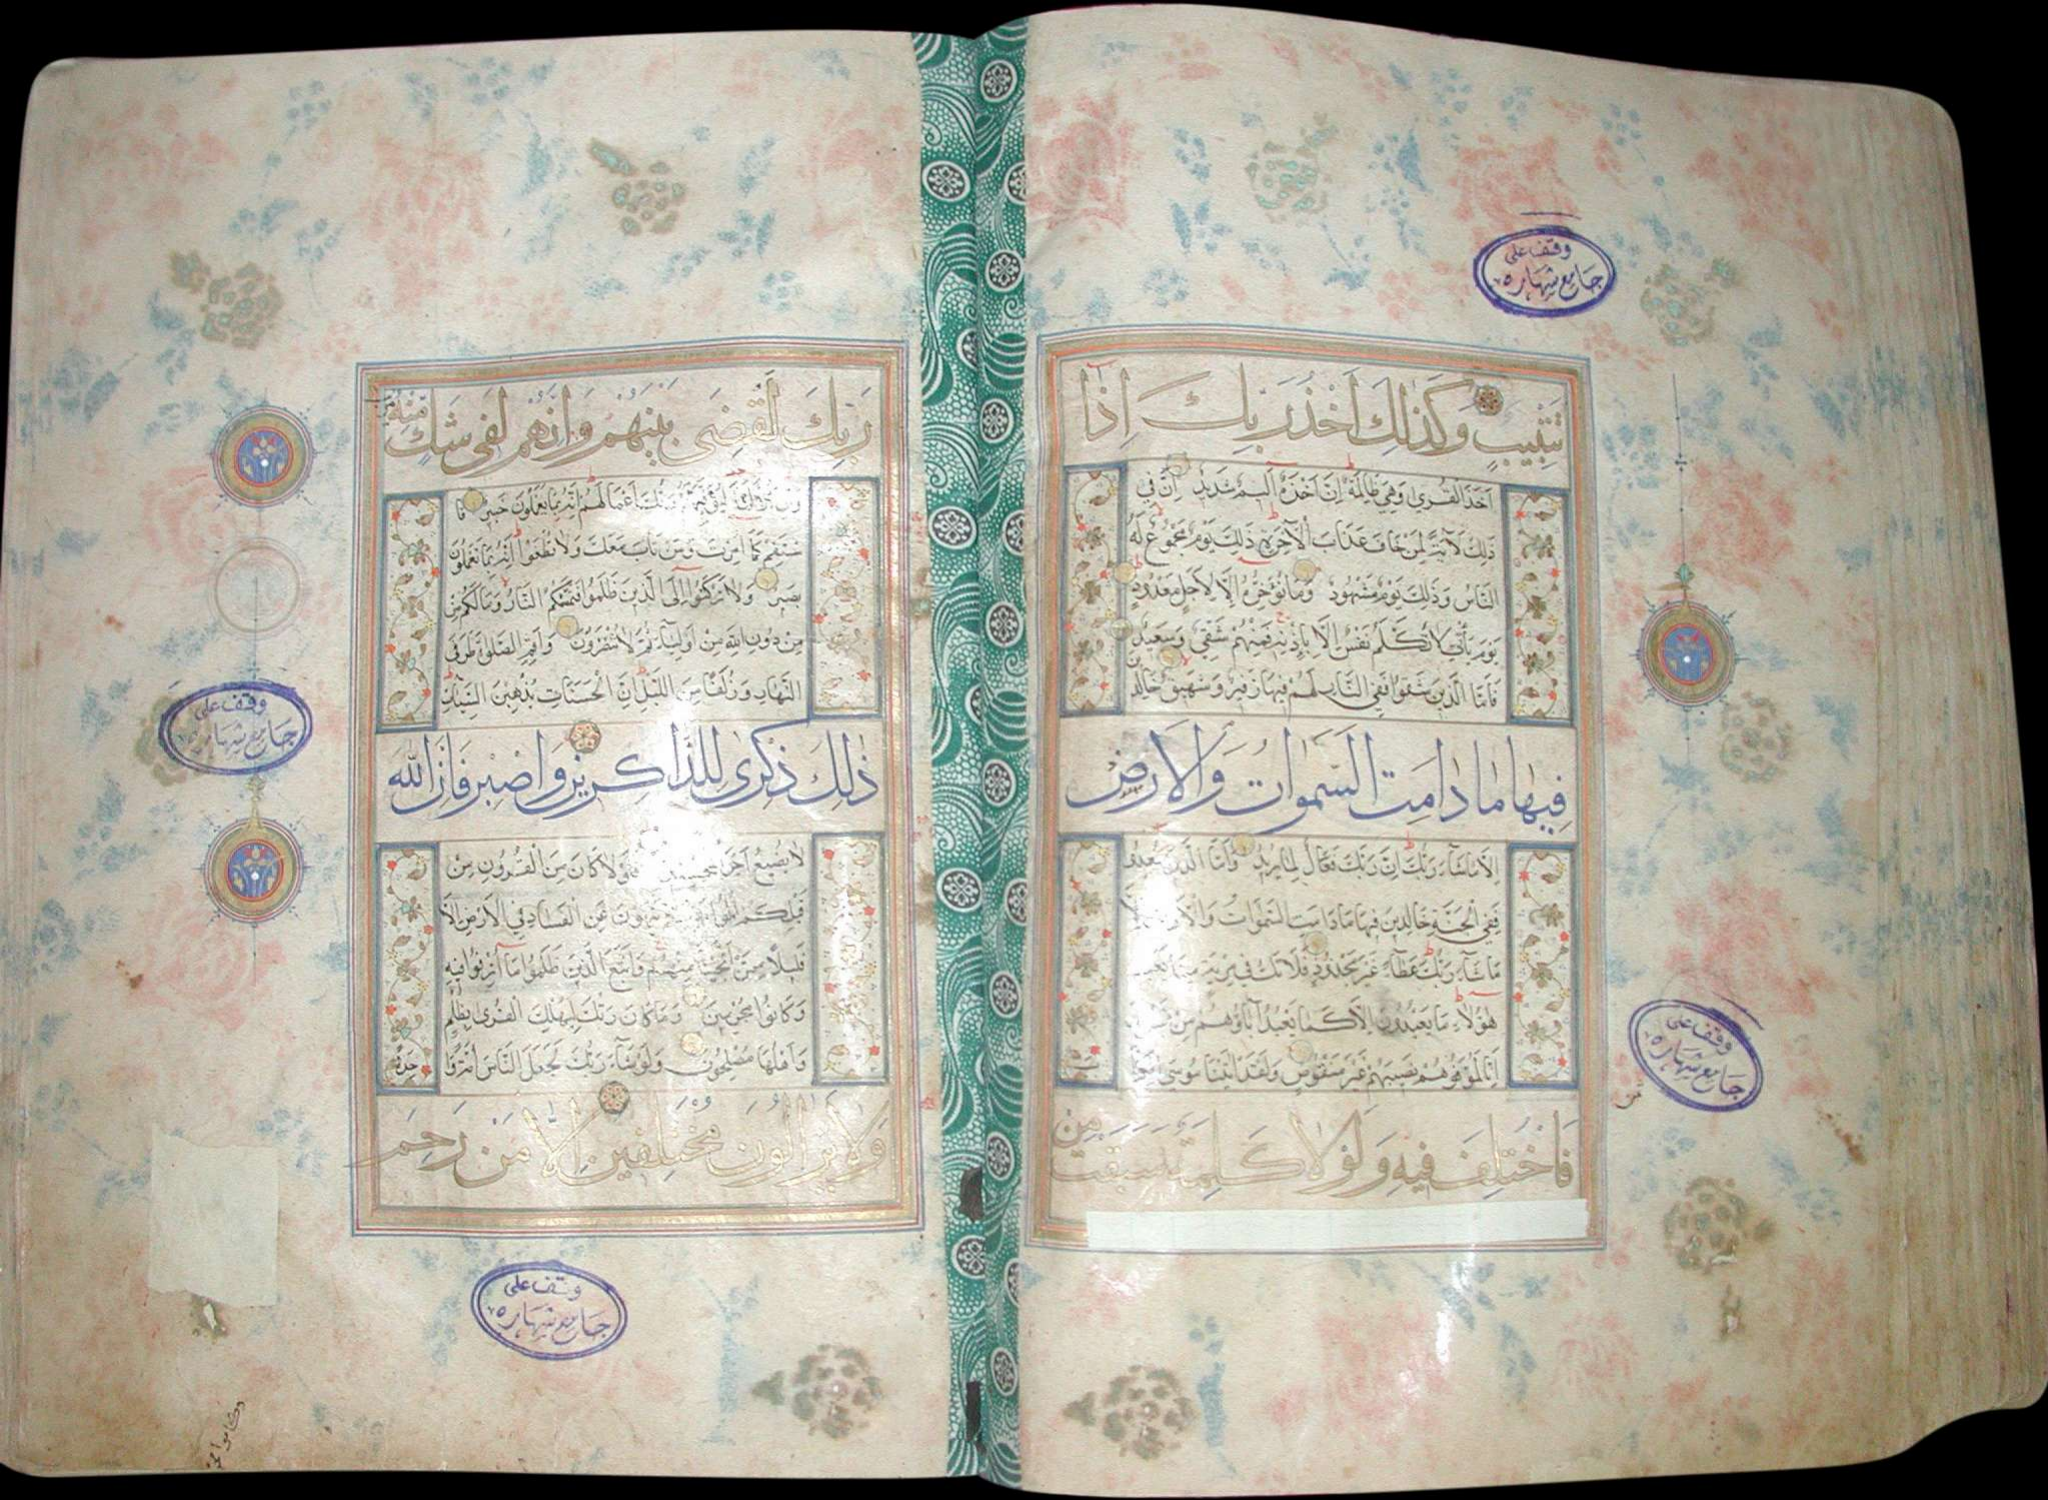 وقف على
جامع شهاره
تتبيب وكذلك اخذ ربك اذا
اخذ القرى وهي ظالمة ان اخذه اليم شديد ان في
ذلك لآية لمن خاف عذاب الآخرة ذلك يوم مجموع له
الناس وذلك يوم مشهود وما نؤخره الا لاجل معدود
يوم يأتي لا تكلم نفس الا باذنه فمنهم شقي وسعيد
فاما الذين شقوا ففي النار لهم فيها زفير وشهيق خالدين
فيها ما دامت السموات والارض
الا ما شاء ربك ان ربك فعال لما يريد واما الذين سعدوا
ففي الجنة خالدين فيها ما دامت السموات والارض الا
ما شاء ربك عطاء غير مجذوذ فلا تك في مرية مما يعبد
هؤلاء ما يعبدون الا كما يعبد آباؤهم من
انا لموفوهم نصيبهم غير منقوص ولقد آتينا موسى
فاختلف فيه ولولا كلمة سبقت من
وقف على
جامع شهاره
ربك لقضى بينهم وانهم لفى شك منه
اعمالهم انه بما يعملون خبير فا
ستقم كما امرت ومن تاب معك ولا تطغوا انه بما تعملون
بصير ولا تركنوا الى الذين ظلموا فتمسكم النار وما لكم من
من دون الله من اولياء ثم لا تنصرون واقم الصلوة طرفى
النهار وزلفا من الليل ان الحسنات يذهبن السيئات
ذلك ذكرى للذاكرين واصبر فان الله
لا يضيع اجر المحسنين فلولا كان من القرون من
قبلكم اولوا بقية ينهون عن الفساد في الارض الا
قليلا ممن انجينا منهم واتبع الذين ظلموا ما اترفوا فيه
وكانوا مجرمين وما كان ربك ليهلك القرى بظلم
واهلها مصلحون ولو شاء ربك لجعل الناس امة وا
حدة
ولا يزالون مختلفين الا من رحم
وقف على
جامع شهاره
وقف على
جامع شهاره